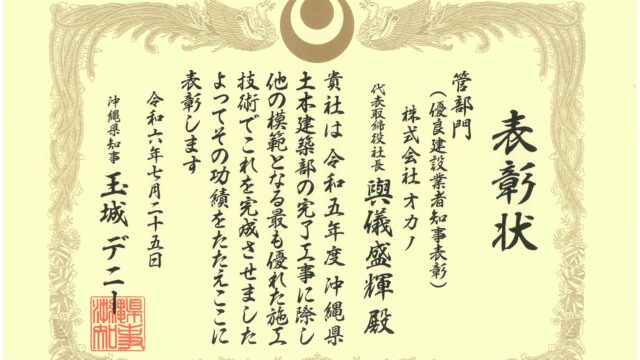 表彰状
管部門
（優良建設業者知事表彰）
株式会社オカノ
代表取締役社長 與儀盛輝 殿
貴社は令和五年度沖縄県
土木建築部の完了工事に際し
他の模範となる最も優れた施工
技術でこれを完成させました
よってその功績をたたえここに
表彰します
令和六年七月二十五日
沖縄県知事 玉城デニー